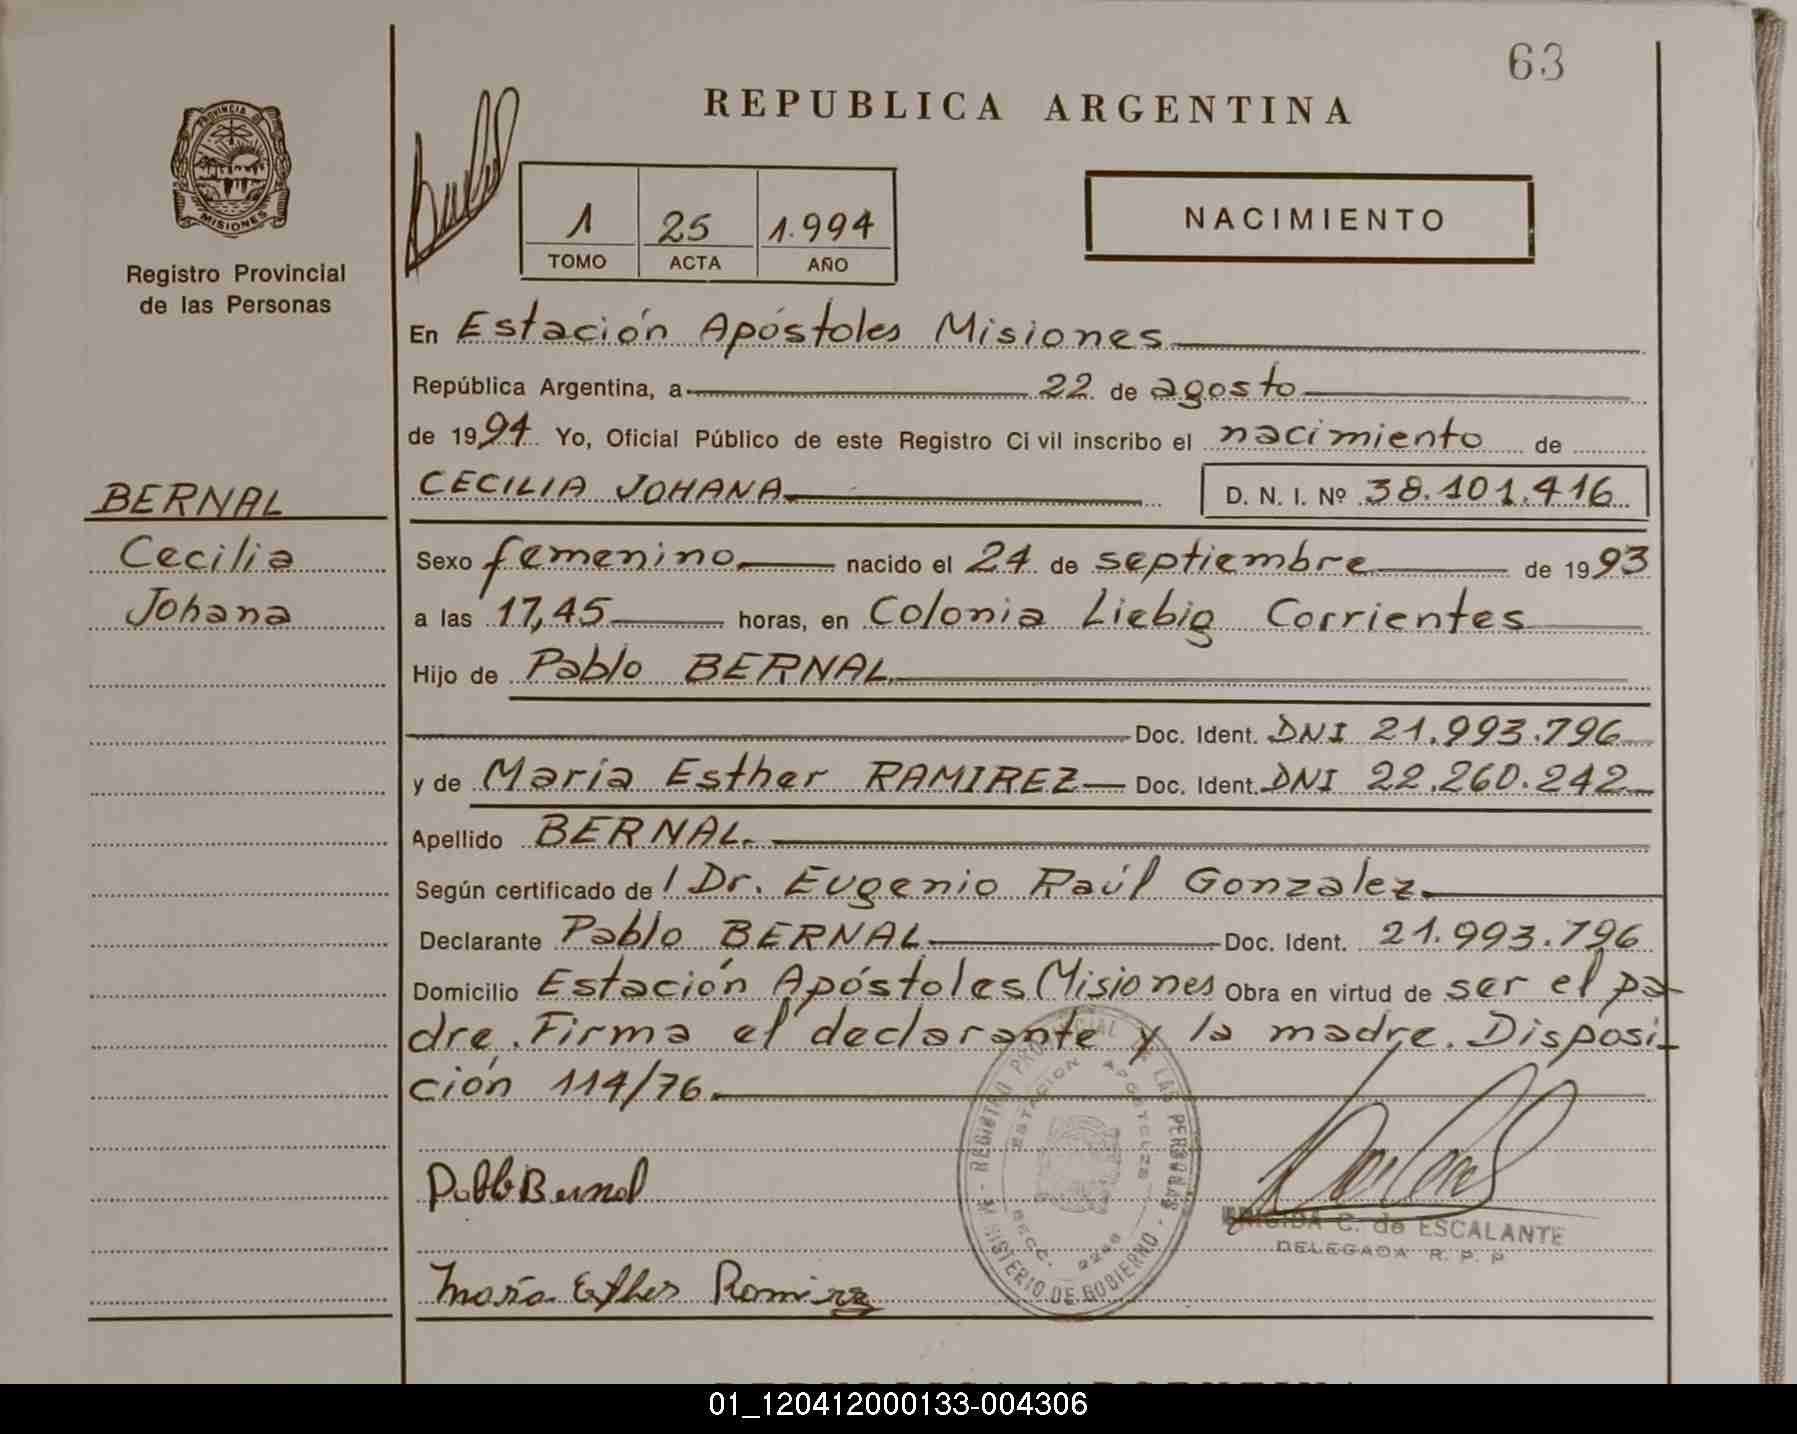 63
REPUBLICA ARGENTINA
PROVINCIA DE
MISIONES
Registro Provincial
de las Personas
1 25 1.994
TOMO ACTA AÑO
NACIMIENTO
En Estación Apóstoles Misiones
República Argentina, a 22 de agosto
de 1994 Yo, Oficial Público de este Registro Civil inscribo el nacimiento de
BERNAL
Cecilia
Johana
CECILIA JOHANA D. N. I. Nº 38.101.416
Sexo femenino nacido el 24 de septiembre de 1993
a las 17,45 horas, en Colonia Liebig Corrientes
Hijo de Pablo BERNAL
Doc. Ident. DNI 21.993.796
y de María Esther RAMIREZ Doc. Ident. DNI 22.260.242
Apellido BERNAL.
Según certificado de l Dr. Eugenio Raúl Gonzalez
Declarante Pablo BERNAL Doc. Ident. 21.993.796
Domicilio Estación Apóstoles Misiones Obra en virtud de ser el pa-
dre. Firma el declarante y la madre. Disposi-
ción 114/76.
REGISTRO PROVINCIAL DE LAS PERSONAS
ESTACION APOSTOLES
MINISTERIO DE GOBIERNO
Pablo Bernal
C. de ESCALANTE
DELEGADA R. P. P.
María Esther Ramirez
01_120412000133-004306